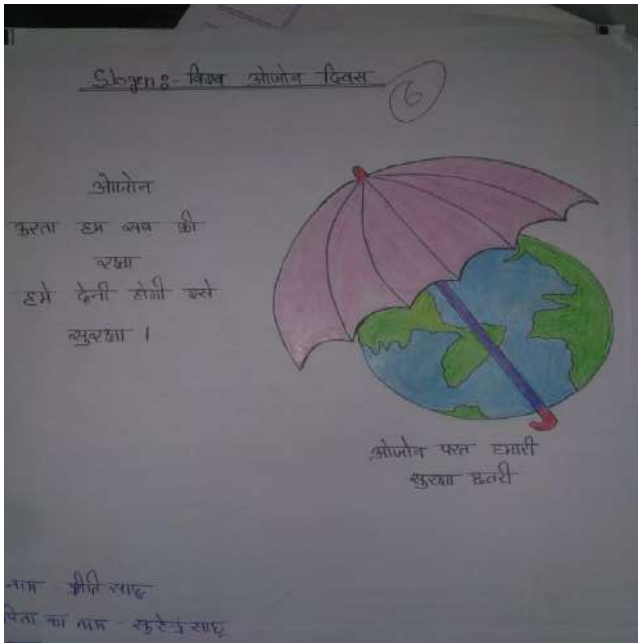 Slogen:- विश्व ओजोन दिवस
6
ओजोन
करता हम सब की
रक्षा
हमे देनी होगी इसे
सुरक्षा ।
ओजोन परत हमारी
सुरक्षा छतरी
नाम - प्रीति साहू
पिता का नाम - सुरेन्द्र साहू